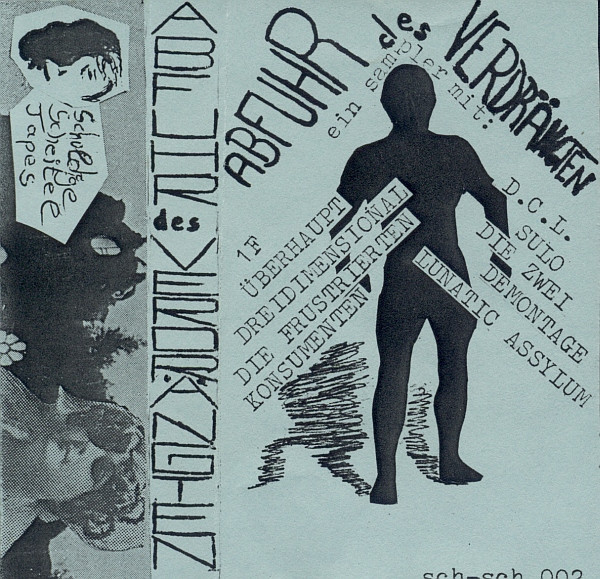 Schuldige
Scheitel
Tapes
ABFUHR des VERDRÄNGTEN
ABFUHR des VERDRÄNGTEN
ein sampler mit:
1F
ÜBERHAUPT
DREIDIMENSIONAL
DIE FRUSTRIERTEN
KONSUMENTEN
D.C.L.
SULO
DIE ZWEI
DEMONTAGE
LUNATIC ASSYLUM
sch-sch 002